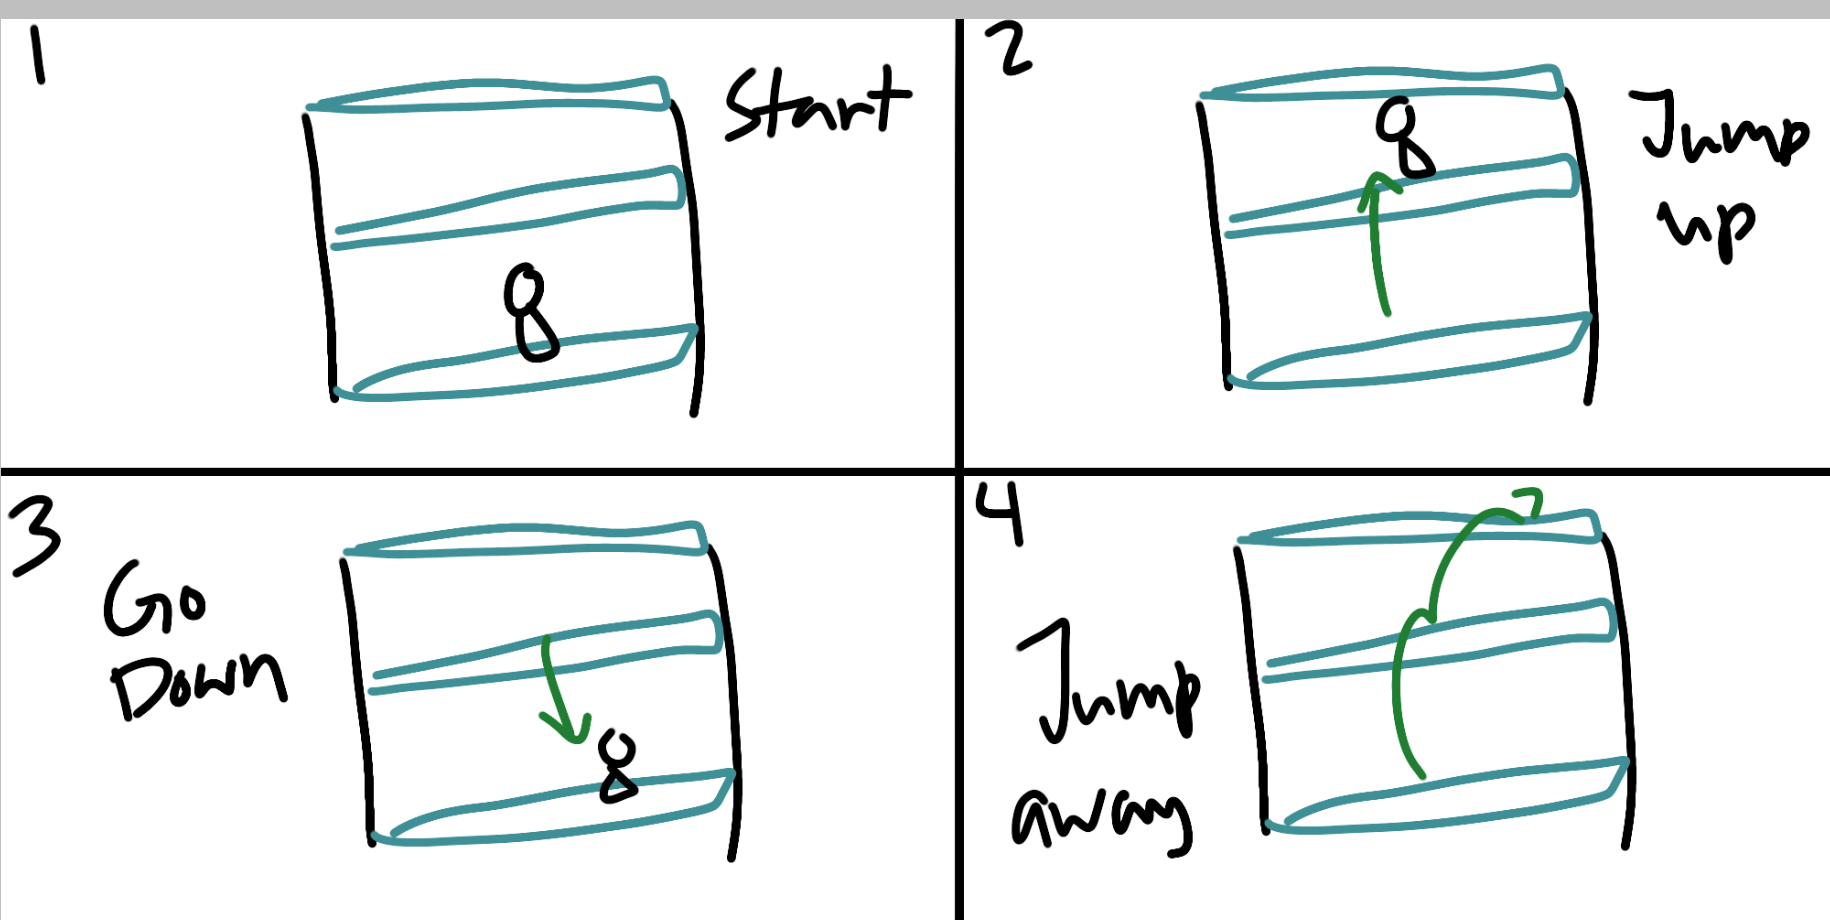 1
Start
2
Jump
up
3
Go
Down
4
Jump
away